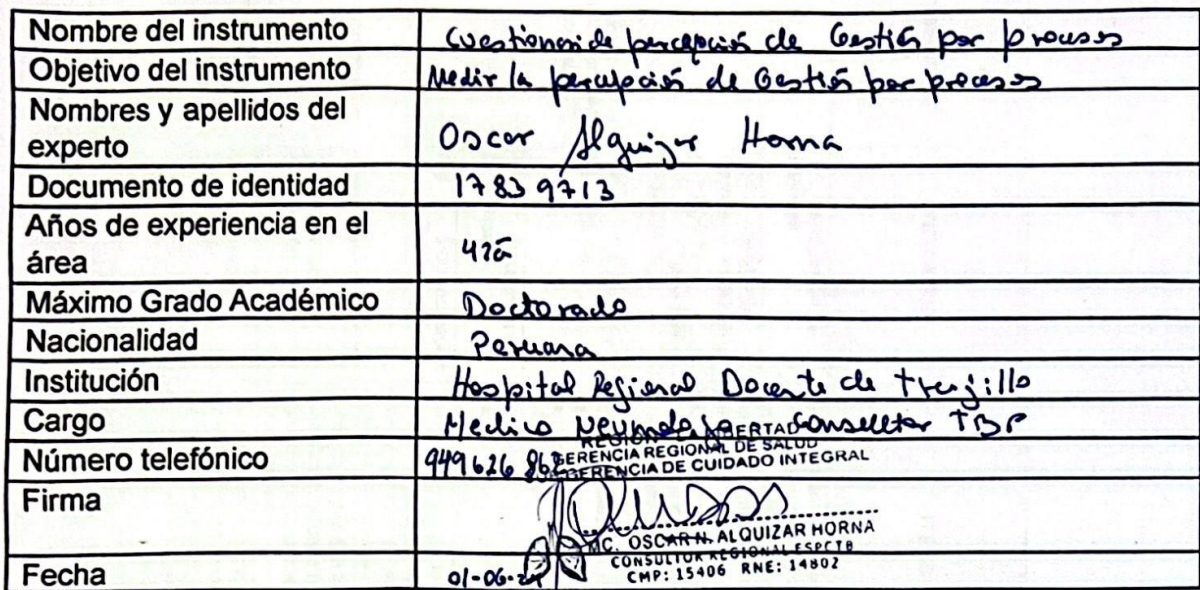 Nombre del instrumento Cuestionario de percepción de Gestión por procesos
Objetivo del instrumento Medir la percepción de Gestión por procesos
Nombres y apellidos del
experto Oscar Alquizar Horna
Documento de identidad 17839713
Años de experiencia en el
área
Máximo Grado Académico Doctorado
Nacionalidad Peruana
Institución Hospital Regional Docente de Trujillo
Cargo Medico Neumologo Consultor TBP
REGIÓN LIBERTAD
Número telefónico 949626
GERENCIA REGIONAL DE SALUD
GERENCIA DE CUIDADO INTEGRAL
Firma
MC. OSCAR N. ALQUIZAR HORNA
CONSULTOR REGIONAL ESPCTB
CMP: 15406 RNE: 14802
Fecha 01-06-24